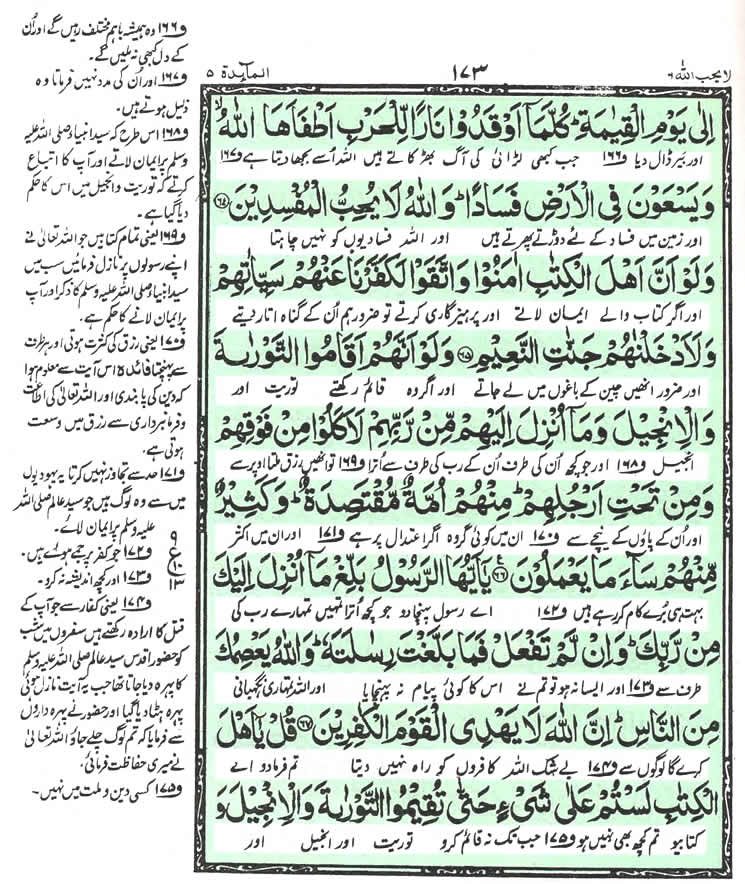 لا یحب اللہ ۶
۱۷۳
المآئدۃ ۵
اِلٰى یَوْمِ الْقِیٰمَةِؕ كُلَّمَاۤ اَوْقَدُوْا نَارًا لِّلْحَرْبِ اَطْفَاَهَا اللّٰهُۙ
اور بَیر ڈال دیا و۱۶۶ جب کبھی لڑائی کی آگ بھڑکاتے ہیں اللہ اُسے بجھا دیتا ہے و۱۶۷
وَ یَسْعَوْنَ فِی الْاَرْضِ فَسَادًاؕ وَ اللّٰهُ لَا یُحِبُّ الْمُفْسِدِیْنَ۝۶۴
اور زمین میں فساد کے لئے دوڑتے پھرتے ہیں اور اللہ فسادیوں کو نہیں چاہتا
وَ لَوْ اَنَّ اَهْلَ الْكِتٰبِ اٰمَنُوْا وَ اتَّقَوْا لَكَفَّرْنَا عَنْهُمْ سَیِّاٰتِهِمْ
اور اگر کتاب والے ایمان لاتے اور پرہیزگاری کرتے تو ضرور ہم اُن کے گناہ اتار دیتے
وَ لَاَدْخَلْنٰهُمْ جَنّٰتِ النَّعِیْمِ۝۶۵ وَ لَوْ اَنَّهُمْ اَقَامُوا التَّوْرٰىةَ
اور ضرور انھیں چین کے باغوں میں لے جاتے اور اگر وہ قائم رکھتے توریت اور
وَ الْاِنْجِیْلَ وَ مَاۤ اُنْزِلَ اِلَیْهِمْ مِّنْ رَّبِّهِمْ لَاَكَلُوْا مِنْ فَوْقِهِمْ
انجیل و۱۶۸ اور جو کچھ اُن کی طرف اُن کے رب کی طرف سے اُترا و۱۶۹ تو انھیں رزق ملتا اوپر سے
وَ مِنْ تَحْتِ اَرْجُلِهِمْؕ مِنْهُمْ اُمَّةٌ مُّقْتَصِدَةٌؕ وَ كَثِیْرٌ
اور اُن کے پاؤں کے نیچے سے و۱۷۰ ان میں کوئی گروہ اگر اعتدال پر ہے و۱۷۱ اور ان میں اکثر
مِّنْهُمْ سَآءَ مَا یَعْمَلُوْنَ۝۶۶ یٰۤاَیُّهَا الرَّسُوْلُ بَلِّغْ مَاۤ اُنْزِلَ اِلَیْكَ
بہت ہی بُرے کام کر رہے ہیں و۱۷۲ اے رسول پہنچا دو جو کچھ اُترا تمہیں تمہارے رب کی
مِنْ رَّبِّكَؕ وَ اِنْ لَّمْ تَفْعَلْ فَمَا بَلَّغْتَ رِسٰلَتَهٗؕ وَ اللّٰهُ یَعْصِمُكَ
طرف سے و۱۷۳ اور ایسا نہ ہو تو تم نے اس کا کوئی پیام نہ پہنچایا اور اللہ تمہاری نگہبانی
مِنَ النَّاسِؕ اِنَّ اللّٰهَ لَا یَهْدِی الْقَوْمَ الْكٰفِرِیْنَ۝۶۷ قُلْ یٰۤاَهْلَ
کرے گا لوگوں سے و۱۷۴ بے شک اللہ کافروں کو راہ نہیں دیتا تم فرما دو اے
الْكِتٰبِ لَسْتُمْ عَلٰى شَیْءٍ حَتّٰى تُقِیْمُوا التَّوْرٰىةَ وَ الْاِنْجِیْلَ وَ
کتابیو تم کچھ بھی نہیں ہو و۱۷۵ جب تک نہ قائم کرو توریت اور انجیل اور
و۱۶۶ وہ ہمیشہ باہم مختلف رہیں گے اور اُن
کے دل کبھی نہ ملیں گے۔
و۱۶۷ اور اُن کی مدد نہیں فرماتا وہ
ذلیل ہوتے ہیں۔
و۱۶۸ اس طرح کہ سید انبیاء صلی اللہ علیہ
وسلم پر ایمان لاتے اور آپ کا اتباع
کرتے کہ توریت و انجیل میں اس کا حکم
دیا گیا ہے۔
و۱۶۹ یعنی تمام کتابیں جو اللہ تعالیٰ نے
اپنے رسولوں پر نازل فرمائیں سب میں
سید انبیاء صلی اللہ علیہ وسلم کا ذکر اور آپ
پر ایمان لانے کا حکم ہے۔
و۱۷۰ یعنی رزق کی کثرت ہوتی اور ہر طرف
سے پہنچتا فائدہ اس آیت سے معلوم ہوا
کہ دین کی پابندی اور اللہ تعالیٰ کی اطاعت
و فرمانبرداری سے رزق میں وسعت
ہوتی ہے۔
و۱۷۱ حد سے تجاوز نہیں کرتا یہ یہودیوں
میں سے وہ لوگ ہیں جو سید عالم صلی اللہ
علیہ وسلم پر ایمان لائے۔
و۱۷۲ جو کفر پر جمے ہوئے ہیں۔
و۱۷۳ اور کچھ اندیشہ نہ کرو۔
۹
ع
۱۰
۱۳
و۱۷۴ یعنی کفار سے جو آپ کے
قتل کا ارادہ رکھتے ہیں سفروں میں شب
کو حضور اقدس سید عالم صلی اللہ علیہ وسلم
کا پہرہ دیا جاتا تھا جب یہ آیت نازل ہوئی
پہرہ ہٹا دیا گیا اور حضور نے پہرہ داروں
سے فرمایا کہ تم لوگ چلے جاؤ اللہ تعالیٰ
نے میری حفاظت فرمائی۔
و۱۷۵ کسی دین و ملت میں نہیں۔